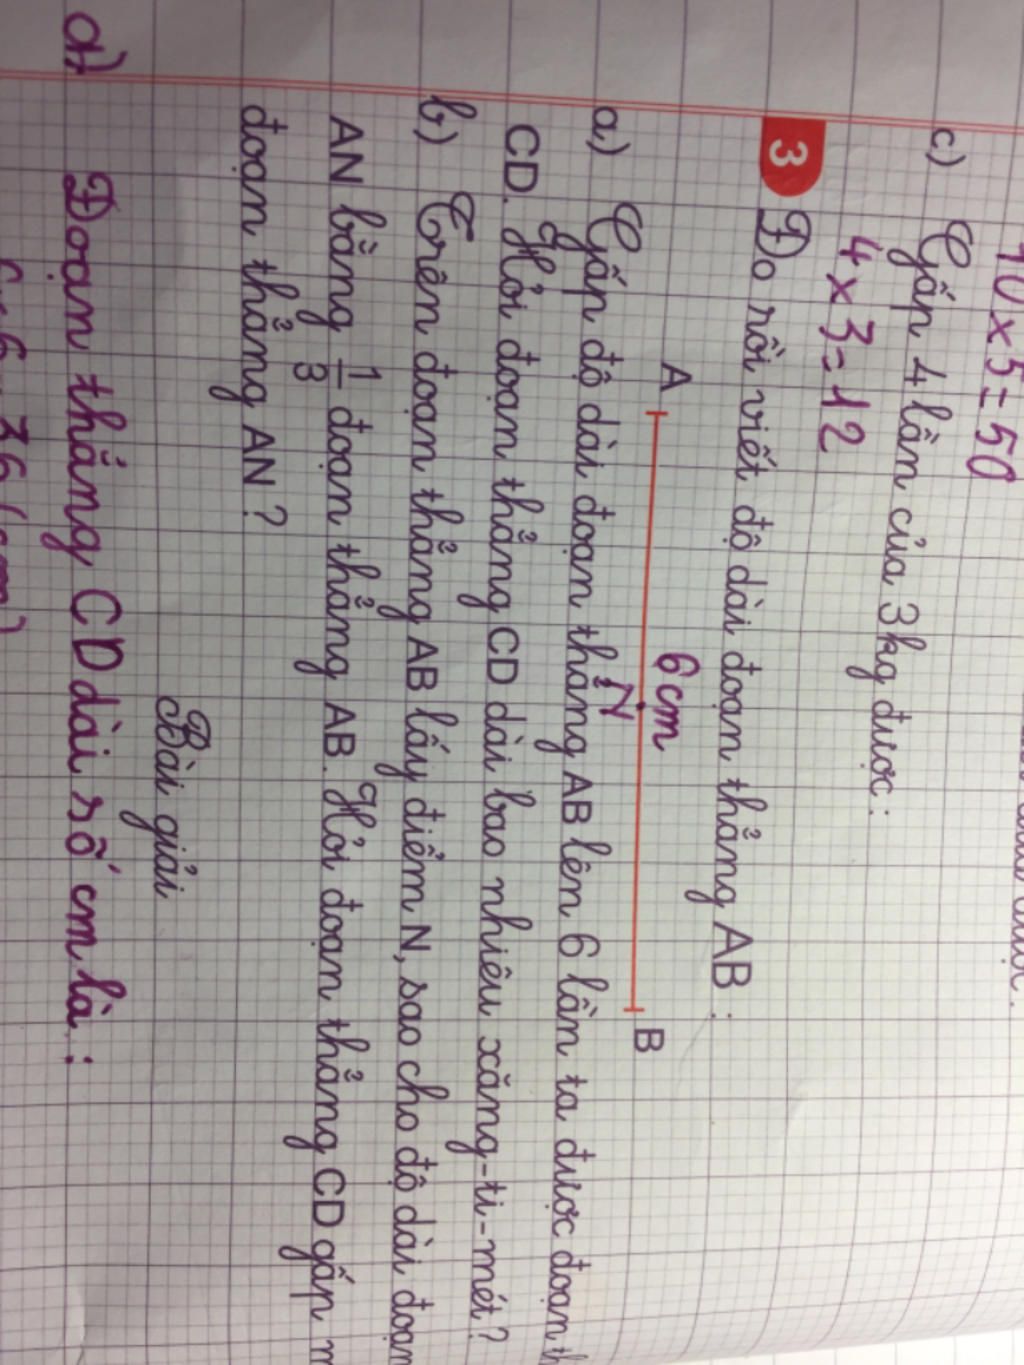 10 x 5 = 50
c) Gấp 4 lần của 3kg được :
4 x 3 = 12
3 Đo rồi viết độ dài đoạn thẳng AB :
6 cm
A N B
a) Gấp độ dài đoạn thẳng AB lên 6 lần ta được đoạn
CD. Hỏi đoạn thẳng CD dài bao nhiêu xăng-ti-mét?
b) Trên đoạn thẳng AB lấy điểm N, sao cho độ dài đoạn
AN bằng 1/3 đoạn thẳng AB. Hỏi đoạn thẳng CD gấp
đoạn thẳng AN ?
Bài giải
a) Đoạn thẳng CD dài số cm là :